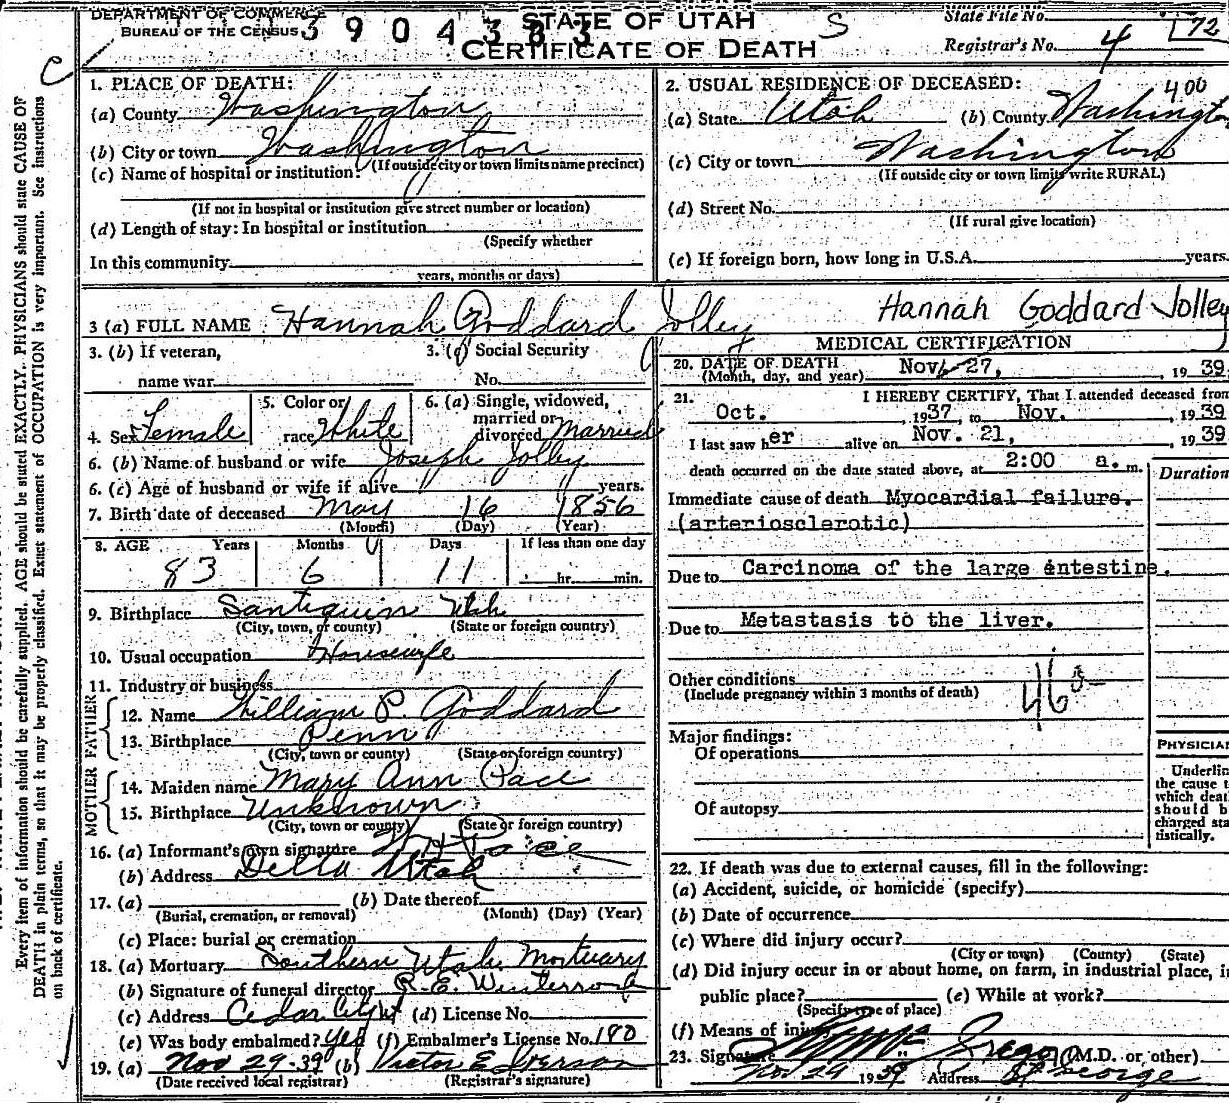 DEPARTMENT OF COMMERCE
BUREAU OF THE CENSUS
3904383
STATE OF UTAH
CERTIFICATE OF DEATH
S
State File No. 172
Registrar's No. 4
C
Every item of information should be carefully supplied. AGE should be stated EXACTLY. PHYSICIANS should state CAUSE OF
DEATH in plain terms, so that it may be properly classified. Exact statement of OCCUPATION is very important. See instructions
on back of certificate.
1. PLACE OF DEATH:
(a) County Washington
(b) City or town Washington
(If outside city or town limits name precinct)
(c) Name of hospital or institution:
(If not in hospital or institution give street number or location)
(d) Length of stay: In hospital or institution
(Specify whether
In this community
years, months or days)
2. USUAL RESIDENCE OF DECEASED:
400
(a) State Utah (b) County Washington
(c) City or town Washington
(If outside city or town limits write RURAL)
(d) Street No.
(If rural give location)
(e) If foreign born, how long in U.S.A. years.
3 (a) FULL NAME Hannah Goddard Jolley
Hannah Goddard Jolley
3. (b) If veteran,
name war
3. (c) Social Security
No.
4. Sex Female
5. Color or
race White
6. (a) Single, widowed,
married or
divorced Married
6. (b) Name of husband or wife Joseph Jolley
6. (c) Age of husband or wife if alive years.
7. Birth date of deceased May 16 1856
(Month) (Day) (Year)
8. AGE Years Months Days If less than one day
83 6 11 hr. min.
9. Birthplace Santiquin Utah
(City, town, or county) (State or foreign country)
10. Usual occupation Housewife
11. Industry or business
FATHER
12. Name William P. Goddard
13. Birthplace Penn
(City, town or county) (State or foreign country)
MOTHER
14. Maiden name Mary Ann Pace
15. Birthplace Unknown
(City, town or county) (State or foreign country)
16. (a) Informant's own signature Pace
(b) Address Delta Utah
17. (a) (b) Date thereof
(Burial, cremation, or removal) (Month) (Day) (Year)
(c) Place: burial or cremation
18. (a) Mortuary Southern Utah Mortuary
(b) Signature of funeral director R.E. Winterrose
(c) Address Cedar City (d) License No.
(e) Was body embalmed? Yes (f) Embalmer's License No. 180
19. (a) Nov 29-39 (b) Victor E Iverson
(Date received local registrar) (Registrar's signature)
MEDICAL CERTIFICATION
20. DATE OF DEATH
(Month, day, and year) Nov. 27, 1939
21. I HEREBY CERTIFY, That I attended deceased from
Oct. 1937, to Nov. 1939
I last saw her alive on Nov. 21, 1939
death occurred on the date stated above, at 2:00 a. m.
Duration
Immediate cause of death Myocardial failure.
(arteriosclerotic)
Due to Carcinoma of the large intestine.
Due to Metastasis to the liver.
Other conditions
(Include pregnancy within 3 months of death)
46
Major findings:
Of operations
Of autopsy
PHYSICIAN
Underline
the cause t
which deat
should b
charged sta
tistically.
22. If death was due to external causes, fill in the following:
(a) Accident, suicide, or homicide (specify)
(b) Date of occurrence
(c) Where did injury occur?
(City or town) (County) (State)
(d) Did injury occur in or about home, on farm, in industrial place, in
public place? (e) While at work?
(Specify type of place)
(f) Means of injury
23. Signature McGregor (M.D. or other)
Nov 29 1939 Address St George